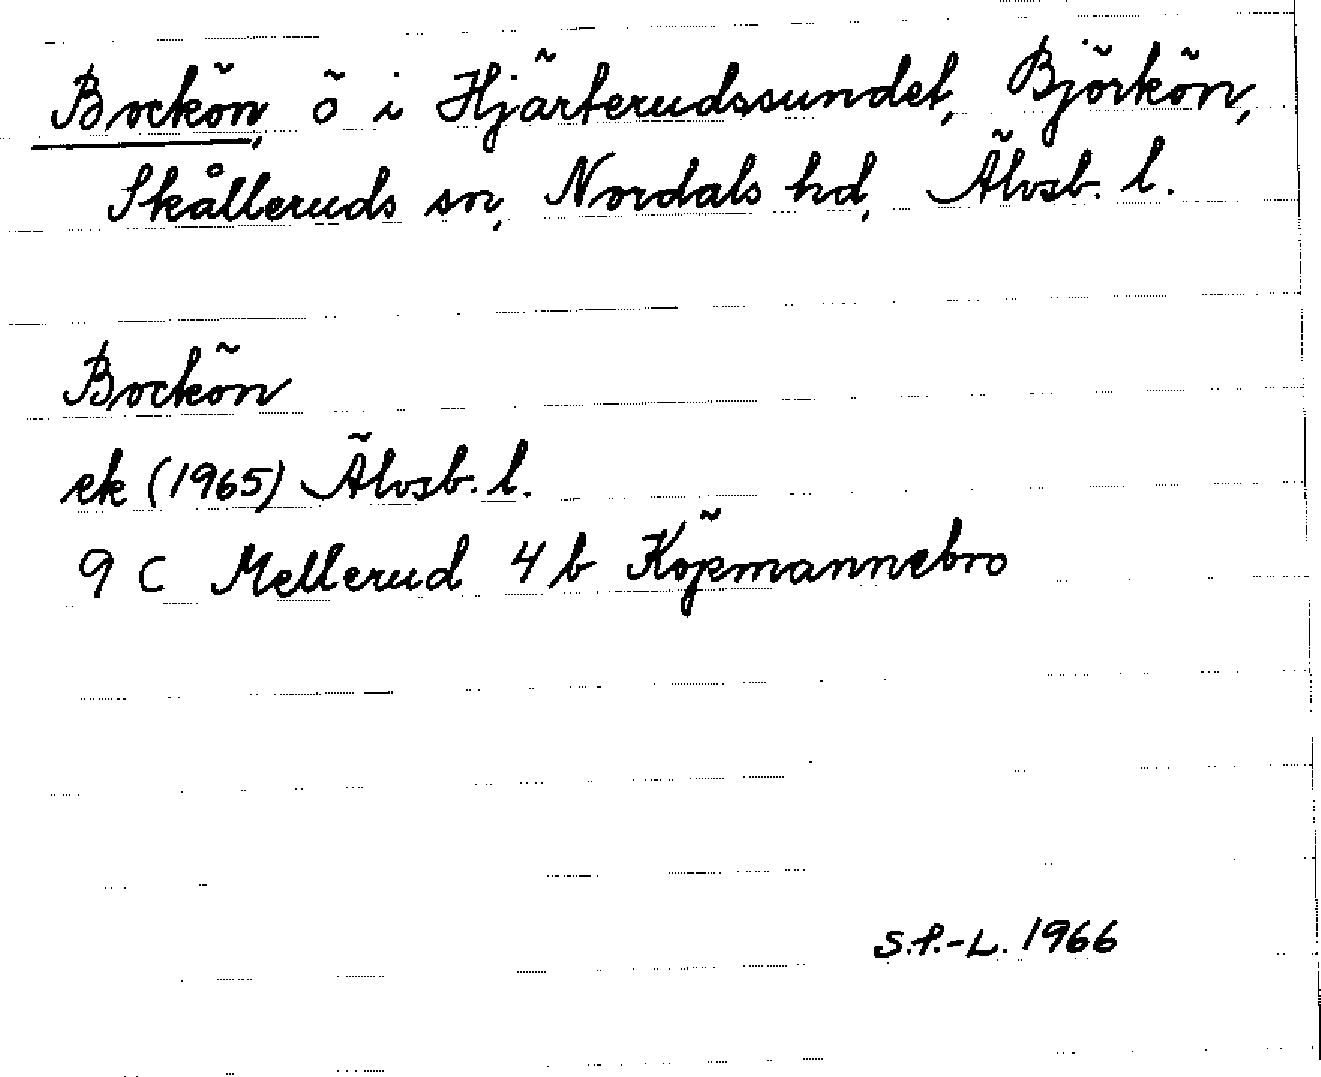 Bockön, ö i Hjärterudssundet, Björkön,
Skålleruds sn, Nordals hd, Älvsb. l.
Bockön
ek (1965) Älvsb. l.
9 C Mellerud 4 b Köpmannebro
S.P.-L. 1966